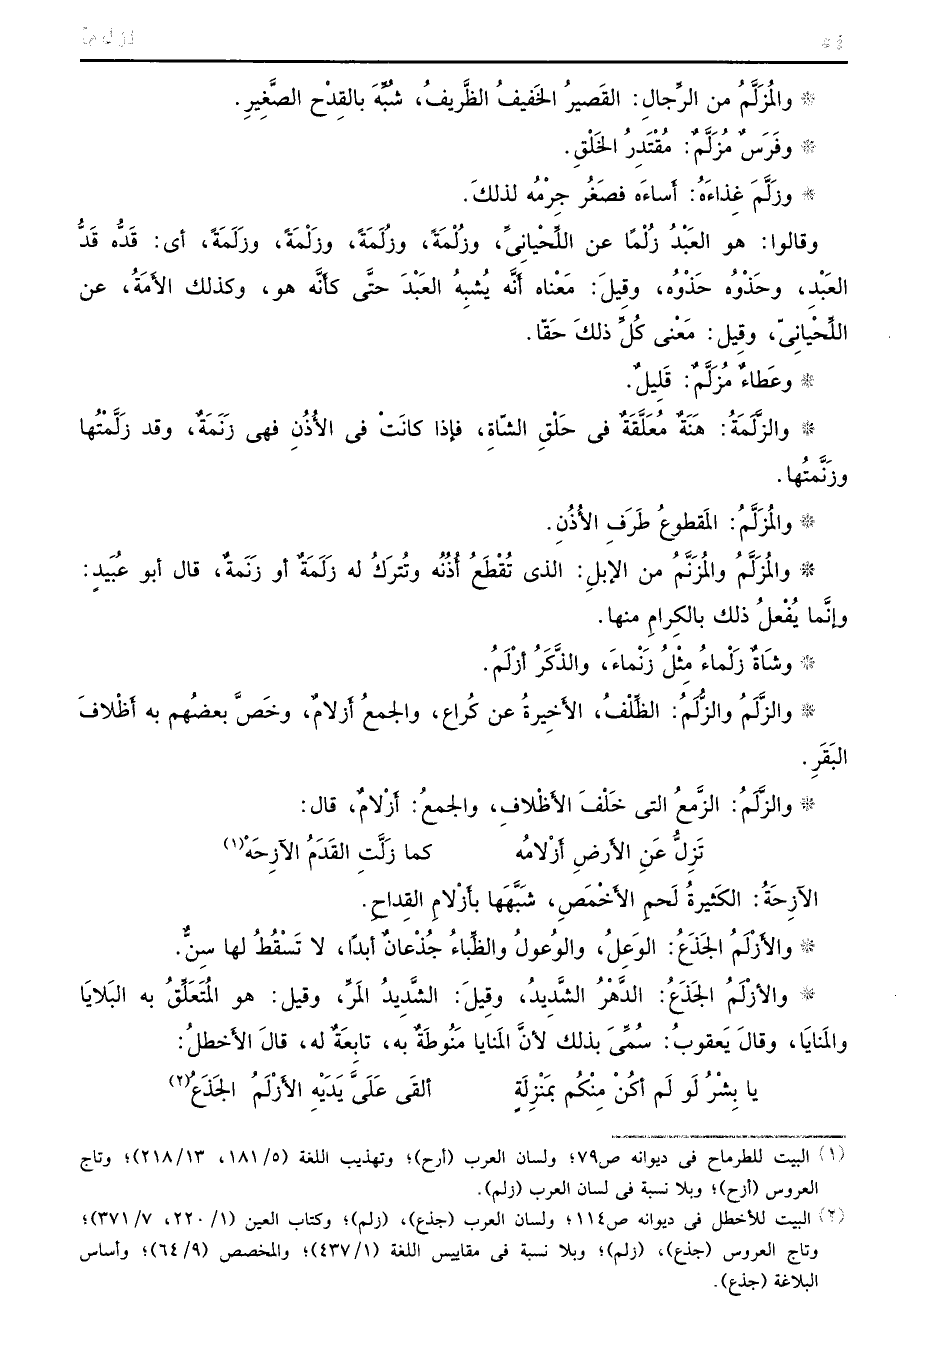 * والمُزَلَّمُ من الرِّجالِ: القَصيرُ الخَفيفُ الظَّريفُ، شُبِّهَ بالقِدْح الصَّغيرِ.
* وفَرَسٌ مُزَلَّمٌ: مُقْتَدِرُ الخَلْقِ.
* وزَلَّمَ غِذاءَهُ: أساءَه فصَغُر جِرْمُه لذلكَ.
وقالوا: هو العَبْدُ زُلْمًا عن اللِّحْيانىِّ، وزُلْمَةً، وزُلَمَةً، وزَلْمَةً، وزَلَمَةً، أى: قَدُّه قَدُّ
العَبْدِ، وحَذْوُه حَذْوُه، وقيلَ: مَعْناه أنَّه يُشبِهُ العَبْدَ حتَّى كأنَّه هو، وكذلك الأمَةُ، عن
اللِّحْيانىّ، وقيل: مَعْنى كُلِّ ذلكَ حَقّا.
* وعَطاءٌ مُزَلَّمٌ: قَليلٌ.
* والزَّلَمَةُ: هَنَةٌ مُعَلَّقَةٌ فى حَلْقِ الشّاةِ، فإذا كانَتْ فى الأُذُنِ فهى زَنَمَةٌ، وقد زَلَّمْتُها
وزَنَّمتُها.
* والمُزَلَّمُ: المَقطوعُ طَرَفِ الأُذُنِ.
* والمُزَلَّمُ والمُزَنَّمُ من الإبلِ: الذى تُقْطَعُ أُذُنُه وتُتركُ له زَلَمَةٌ أو زَنَمةٌ، قال أبو عُبَيدٍ:
وإنَّما يُفْعلُ ذلك بالكِرامِ منها.
* وشاةٌ زَلْماءُ مِثْلُ زَنْماءَ، والذَّكَرُ أزْلَمُ.
* والزَّلَمُ والزُّلَمُ: الظِّلْفُ، الأخيرةُ عن كُراع، والجمعُ أزلامٌ، وخَصَّ بعضُهم به أظْلافَ
البَقَرِ.
* والزَّلَمُ: الزَّمعُ التى خَلْفَ الأَظْلافِ، والجمعُ: أزْلامٌ، قال:
تَزِلُّ عَنِ الأرضِ أزْلامُه كما زَلَّتِ القَدَمُ الآزِحَهْ(١)
الآزِحَةُ: الكَثيرةُ لَحمِ الأخْمَصِ، شَبَّهَها بأزْلامِ القِداحِ.
* والأزْلَمُ الجَذَعُ: الوَعِلُ، والوُعولُ والظِّباءُ جُذْعانٌ أبدًا، لا تَسْقُطُ لها سِنٌّ.
* والأزْلَمُ الجَذَعُ: الدَّهْرُ الشَّديدُ، وقيلَ: الشَّديدُ المَرِّ، وقيل: هو المُتَعَلِّقُ به البَلايَا
والمَنايَا، وقالَ يَعقوبُ: سُمِّىَ بذلك لأنَّ المَنايا مَنُوطَةٌ به، تابِعَةٌ له، قالَ الأخطلُ:
يا بِشْرُ لو لم أكُنْ مِنْكُم بمَنْزِلَةٍ ألقَى عَلَىَّ يَدَيْهِ الأزْلَمُ الجَذَعُ(٢)
(١) البيت للطرماح فى ديوانه ص٧٩؛ ولسان العرب (أرح)؛ وتهذيب اللغة (٥/ ١٨١، ١٣/ ٢١٨)؛ وتاج
العروس (أزح)؛ وبلا نسبة فى لسان العرب (زلم).
(٢) البيت للأخطل فى ديوانه ص١١٤؛ ولسان العرب (جذع)، (زلم)؛ وكتاب العين (١/ ٢٢٠، ٧/ ٣٧١)؛
وتاج العروس (جذع)، (زلم)؛ وبلا نسبة فى مقاييس اللغة (١/ ٤٣٧)؛ والمخصص (٩/ ٦٤)؛ وأساس
البلاغة (جذع).